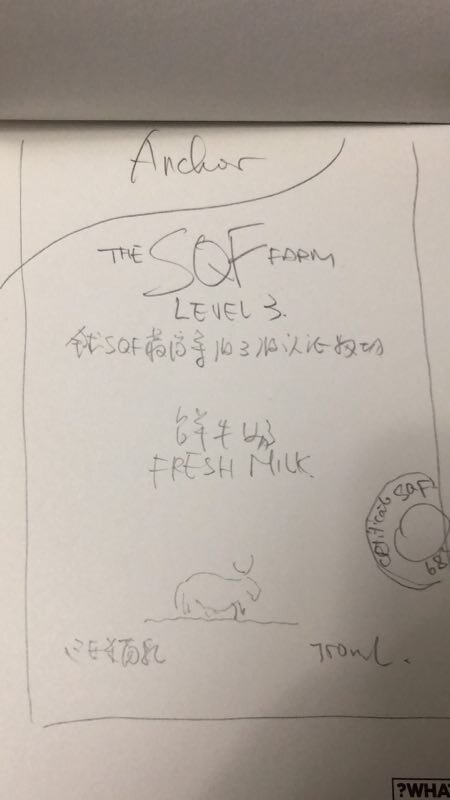 Anchor
THE SQF FARM
LEVEL 3.
全球SQF最高等级3级认证牧场
鲜牛奶
FRESH MILK
certificate SQF
68
750mL.
?WHAT